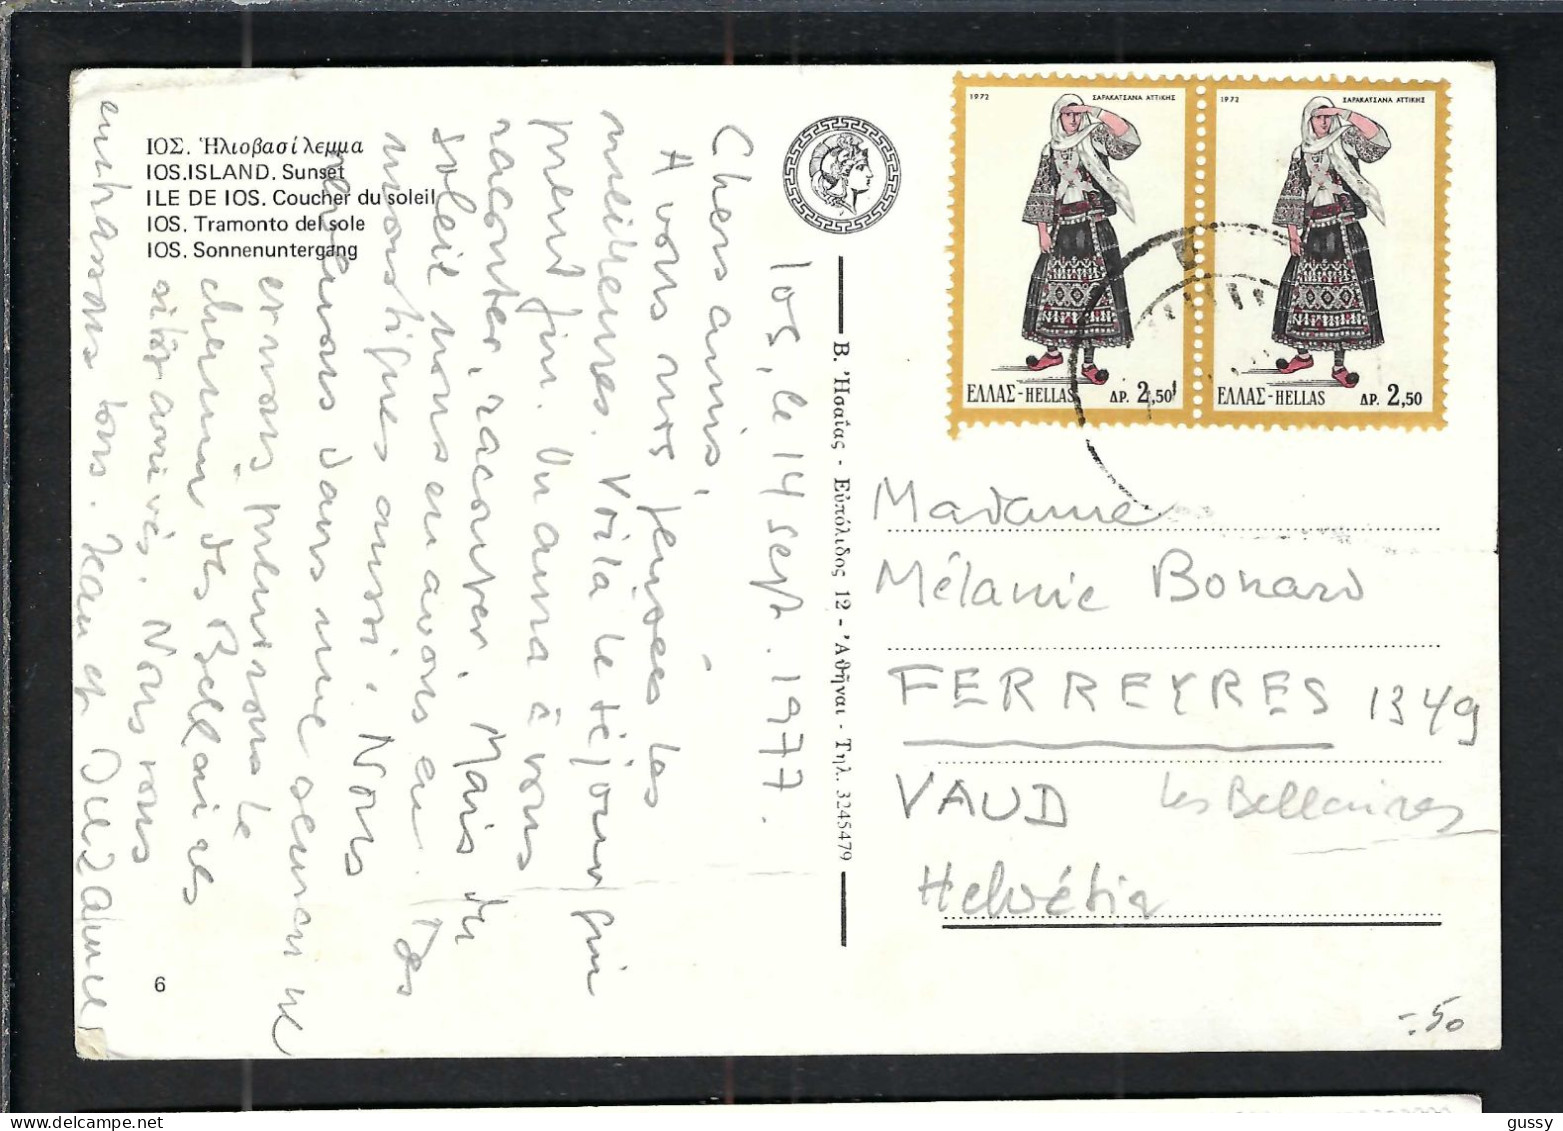 ΙΟΣ. Ἡλιοβασίλεμμα
IOS.ISLAND. Sunset
ILE DE IOS. Coucher du soleil
IOS. Tramonto del sole
IOS. Sonnenuntergang
6
Ios, le 14 sept. 1977.
Chers amis,
A vous nos pensées les
meilleures. Voilà le séjour qui
prend fin. On aura à vous
raconter, raconter. Mais du
soleil nous en avons eu. Des
moustiques aussi. Nous
dans une semaine
et nous le
chemin des Bellaires
sitôt arrivés. Nous vous
embrassons tous. Jean et Suzanne
Β. Ἡσαΐας - Εὐπόλιδος 12 - Ἀθῆναι - Τηλ. 3245479
1972 ΣΑΡΑΚΑΤΣΑΝΑ ΑΤΤΙΚΗΣ
ΕΛΛΑΣ-HELLAS ΔΡ. 2,50
1972 ΣΑΡΑΚΑΤΣΑΝΑ ΑΤΤΙΚΗΣ
ΕΛΛΑΣ-HELLAS ΔΡ. 2,50
Madame
Mélanie Bonard
FERREYRES 1349
VAUD Les Bellaires
Helvétia
-.50
gussy